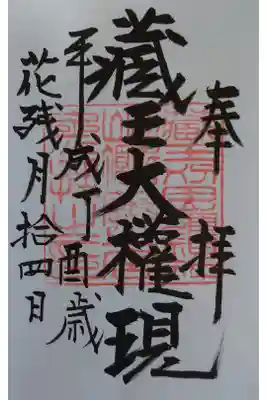 奉拝
藏王大權現
平成丁酉歳
花残月拾四日